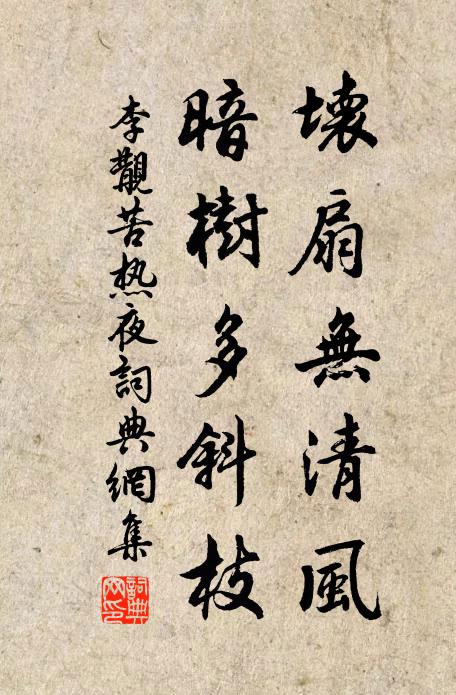 壞扇無清風
暗樹多斜枝
李觀苦热夜詞典網集
詞典网印